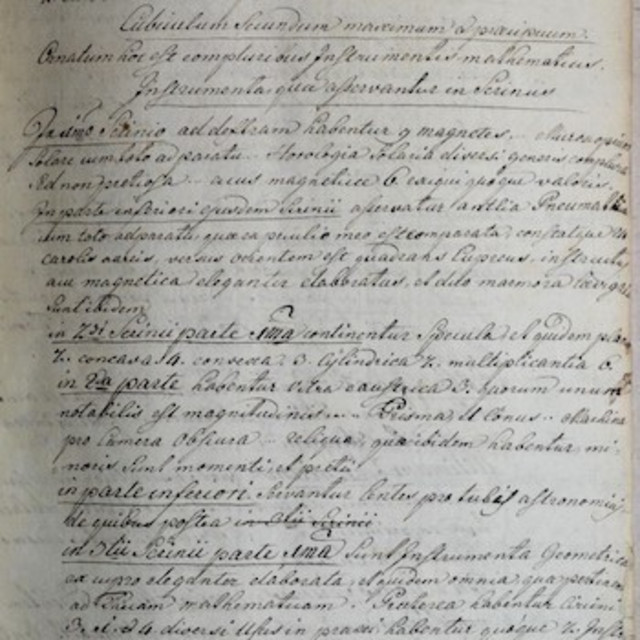 Cubiculum Secundum maximum & præcipuum.
Ornatum hoc est compluribus Instrumentis mathematicis.
Instrumenta quæ asservantur in Scriniis
In 1mo Scrinio ad dextram habentur 9 magnetes
Solare cum toto adparatu Horologia Solaria diversi generis
sed non pretiosa acus magneticæ 6 exiqui quoque valoris
In parte inferiori ejusdem Scrinii asservatur antlia Pneumatica
cum toto adparatu, quæ ex peculio meo est comparata, constatque
carolis aureis, versus orientem est quadrans Cupreus,
acu magnetica eleganter elaboratus, et duo marmora
sunt ibidem
in 2di Scrinii parte 1ma continentur Specula, et quidem plana
2. concava 4. convexa 3. Cylindrica 2. multiplicantia 6.
in 2da parte habentur vitra caustica 3. quorum unum
notabilis est magnitudinis Prisma, et Conus Machina
pro Camera Obscura reliqua, quæ ibidem habentur, mi-
noris sunt momenti, et pretii
in parte inferiori servantur lentes pro tubis astronomicis
de quibus postea in 3tii Scrinii
in 3tii Scrinii parte 1ma sunt Instrumenta Geometrica
ex cupro eleganter elaborata, et quidem omnia, quæ pertinent
ad mathematicam. Præterea habentur Circini
3. et 4 diversi Usus in praxi habentur quoque 2.